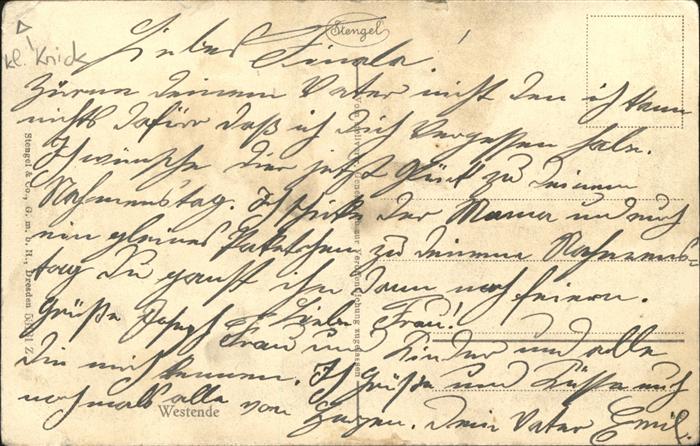 kl. Knick
Stengel
Liebes Finala!
Zürne deinem Vater nicht den ich kann
nichts dafürr daß ich dich Vergessen habe.
Ich wünsche dier jetzt Glück zu deinem
Nahmenstag. Ich schicke der Mama und euch
ein gleines Paketchen zu deinem Nahmens=
tag du ganst ihn dann noch feiern.
Liebe Frau!
Grüße Joseph Frau und Kinder und alle
die mich kennen. Ich Grüße und Küsse euch
nochmals alle von Herzen. Dein Vater Emil.
Westende
Stengel & Co., G. m. b. H., Dresden